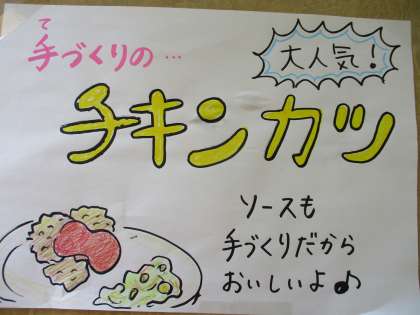 て
手づくりの…
大人気!
チキンカツ
ソースも
手づくりだから
おいしいよ♪